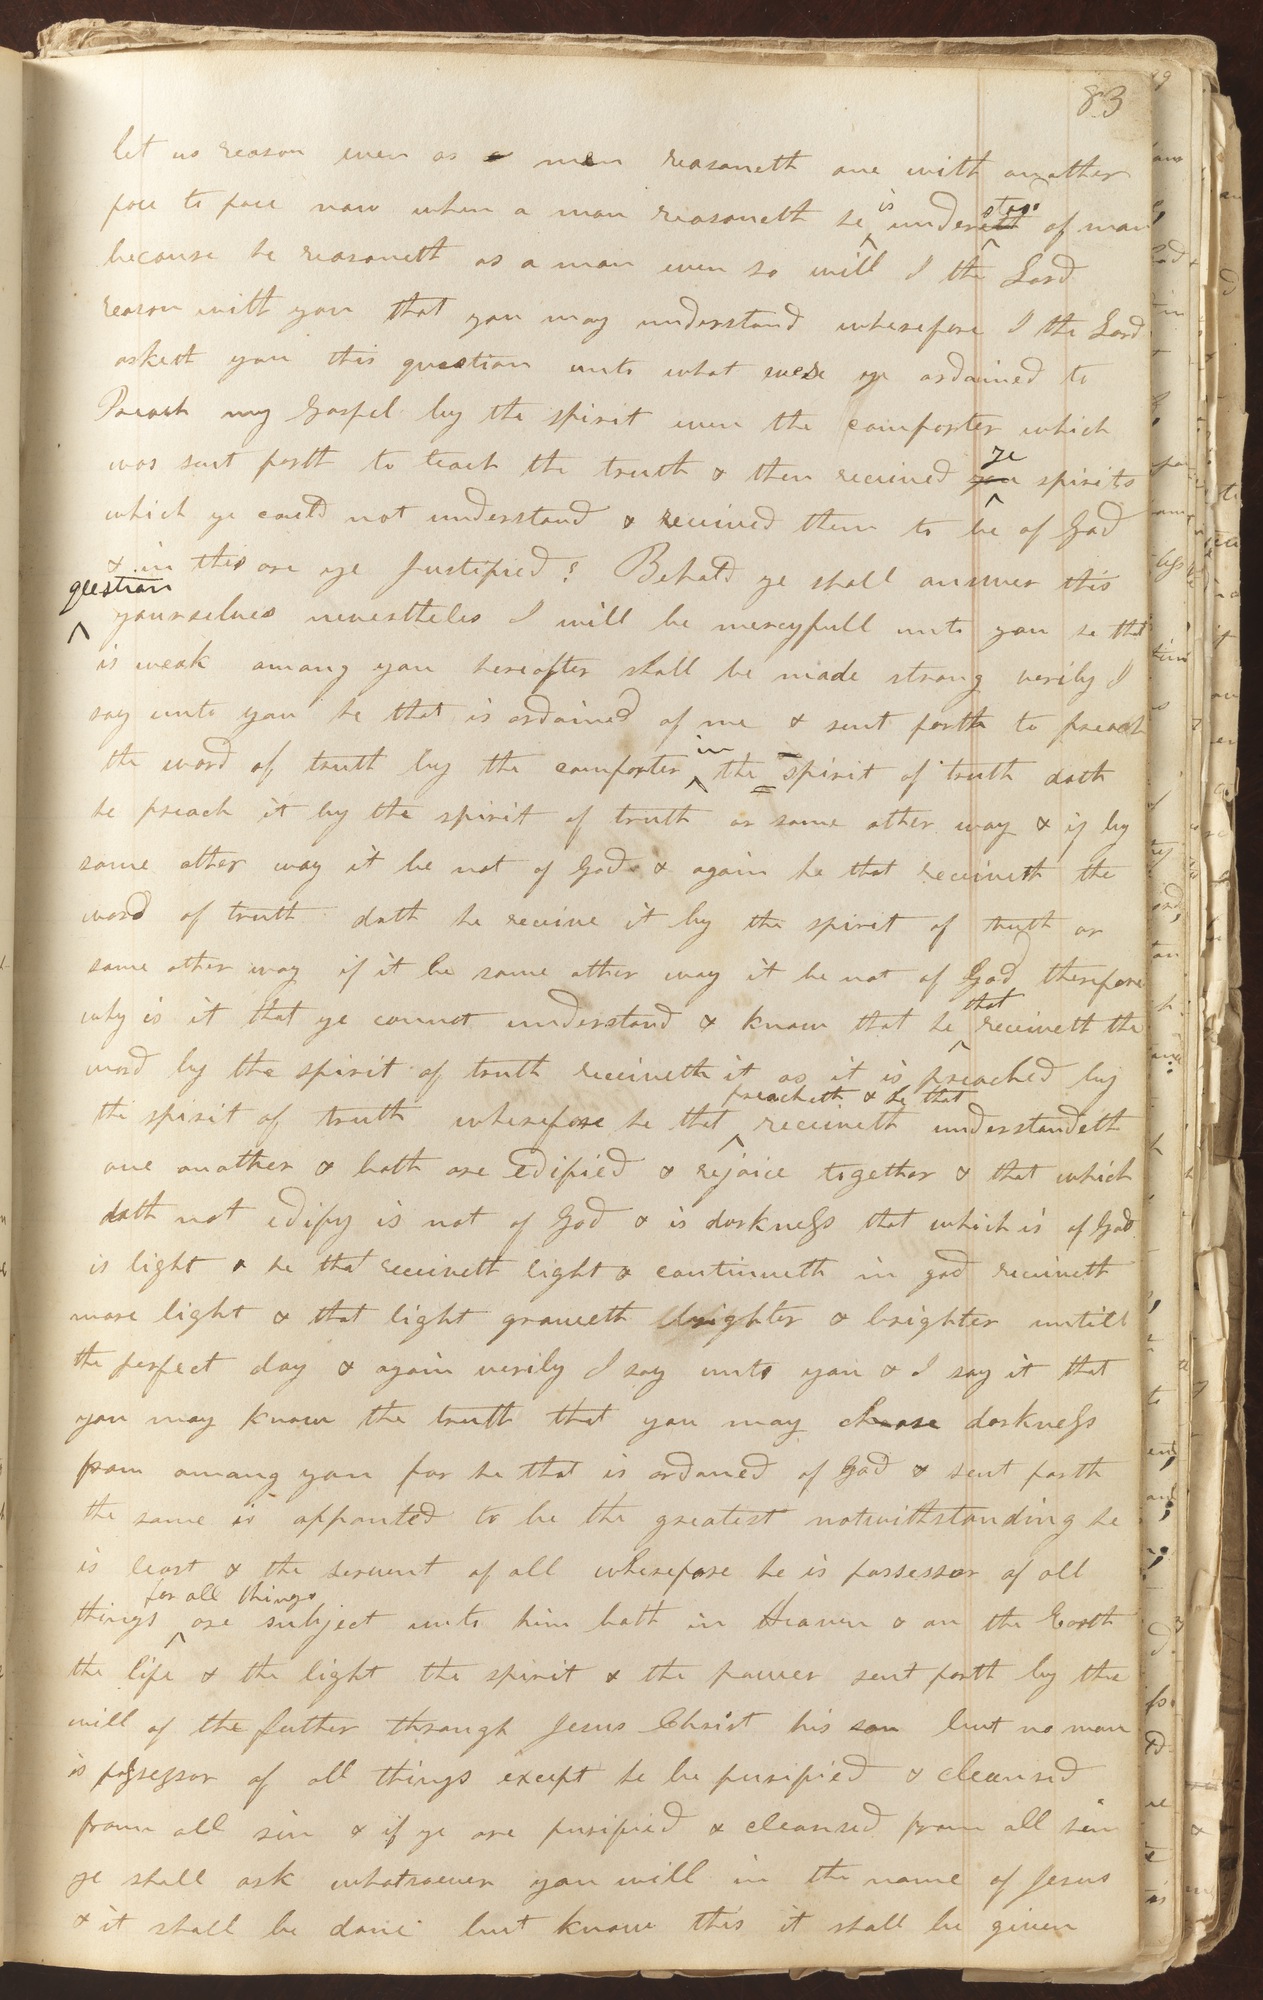 83
let us reason even as a men reasoneth one with another
face to face now when a man reasoneth he is understood of man
because he reasoneth as a man even so will I the Lord
reason with you that you may understand wherefore I the Lord
asketh you this question unto what were ye ordained to
Preach my Gospel by the spirit even the comforter which
was sent forth to teach the truth & then received ye you spirits
which ye could not understand & received them to be of God
& in this are ye Justified? Behold ye shall answer this
question yourselves nevertheles I will be mercyfull unto you he that
is weak among you hereafter shall be made strong verily I
say unto you he that is ordained of me & sent forth to preach
the word of truth by the comforter in the spirit of truth doth
he preach it by the spirit of truth or some other way & if by
some other way it be not of God & again he that receiveth the
word of truth doth he receive it by the spirit of truth or
some other way if it be some other way it be not of God therefore
why is it that ye cannot understand & know that he that receiveth the
word by the spirit of truth receiveth it as it is preached by
the spirit of truth wherefore he that preacheth & he that receiveth understandeth
one another & both are edified & rejoice together & that which
doth not edify is not of God & is darkness that which is of God
is light & he that receiveth light & continueth in god receiveth
more light & that light groweth brighter & brighter untill
the perfect day & again verily I say unto you & I say it that
you may know the truth that you may chase darkness
from among you for he that is ordaned of God & sent forth
the same is appointed to be the greatest notwithstanding he
is least & the servent of all wherefore he is possessor of all
things for all things are subject unto him both in Heaven & on the Earth
the life & the light the spirit & the power sent forth by the
will of the father through Jesus Christ his son but no man
is possessor of all things except he be purified & cleansed
from all sin & if ye are purified & cleansed from all sin
ye shall ask whatsoever you will in the name of Jesus
& it shall be done but know this it shall be given